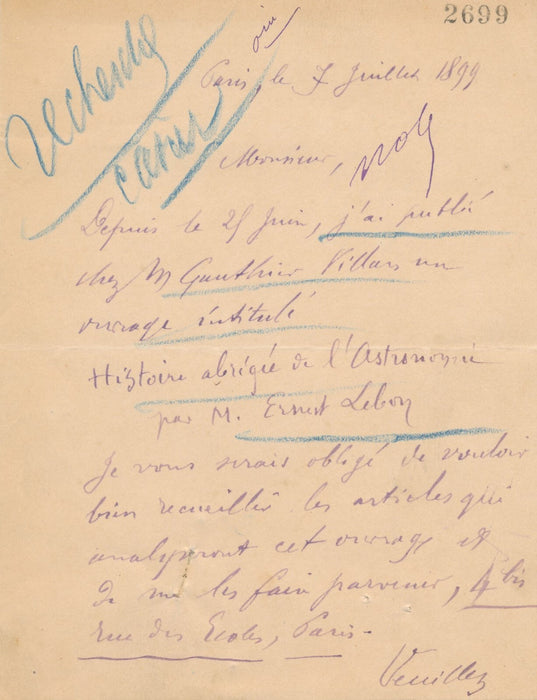 2699
oui
Paris, le 7 Juillet 1899
recherche
Monsieur,
Depuis le 25 Juin, j'ai publié
chez M Gauthier Villars un
ouvrage intitulé
Histoire abrégée de l'Astronomie
par M. Ernest Lebon
Je vous serais obligé de vouloir
bien recueillir les articles qui
analyseront cet ouvrage et
de me les faire parvenir, 4 bis
rue des Ecoles, Paris.
Veuillez